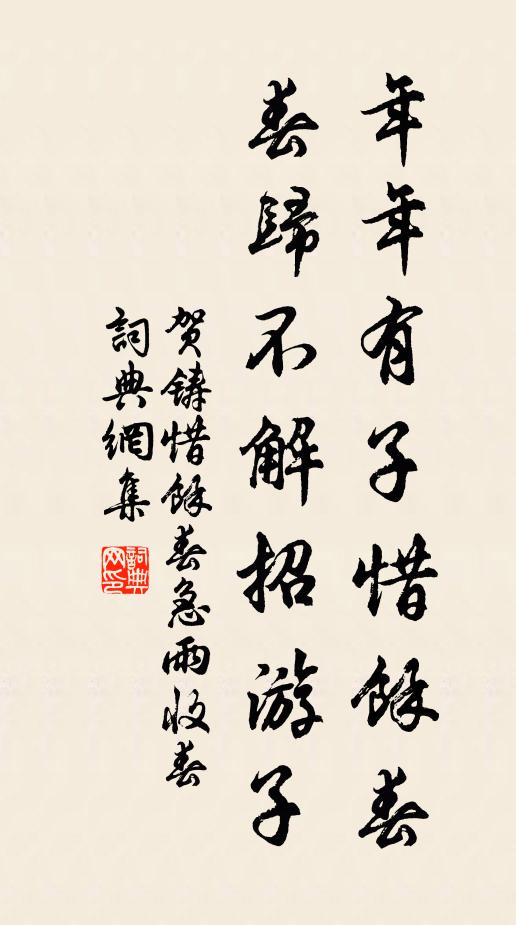 年年有子惜餘春
春歸不解招游子
賀鑄惜餘春急雨收春
詞典網集
詞典
网印